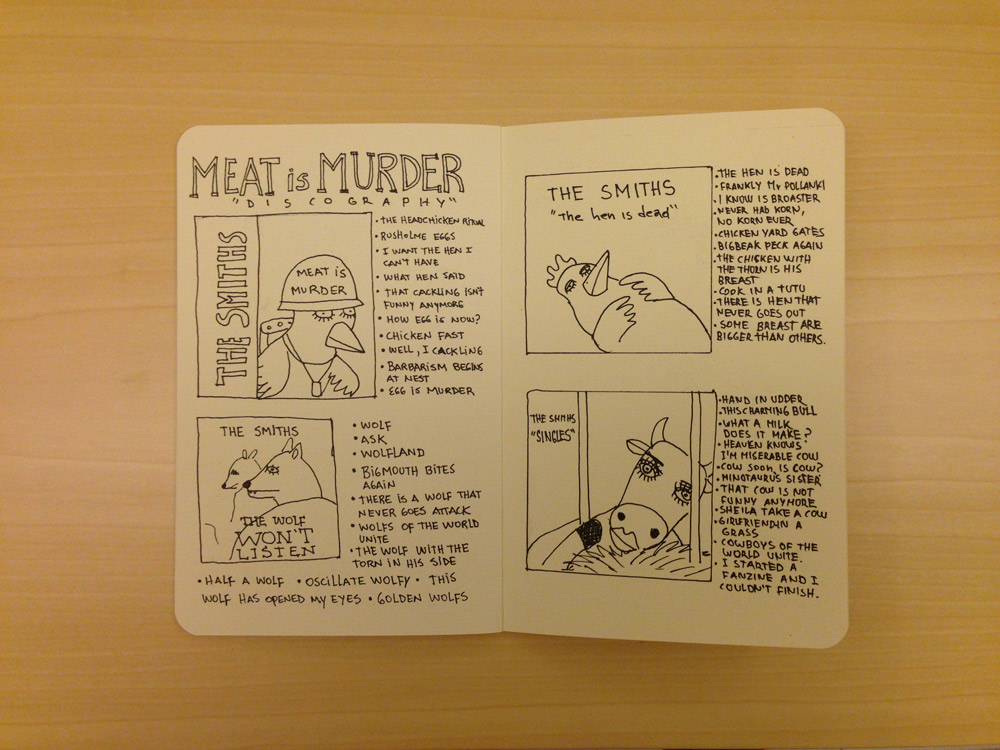 MEAT is MURDER
"DISCOGRAPHY"
THE SMITHS
MEAT is
MURDER
• THE HEADCHICKEN RITUAL
• RUSHOLME EGGS
• I WANT THE HEN I
CAN'T HAVE
• WHAT HEN SAID
• THAT CACKLING ISN'T
FUNNY ANYMORE
• HOW EGG is NOW?
• CHICKEN FAST
• WELL, I CACKLING
• BARBARISM BEGINS
AT NEST
• EGG is MURDER
THE SMITHS
THE WOLF
WON'T
LISTEN
• WOLF
• ASK
• WOLFLAND
• BIGMOUTH BITES
AGAIN
• THERE IS A WOLF THAT
NEVER GOES ATTACK
• WOLFS OF THE WORLD
UNITE
• THE WOLF WITH THE
TORN IN HIS SIDE
• HALF A WOLF • OSCILLATE WOLFY • THIS
WOLF HAS OPENED MY EYES • GOLDEN WOLFS
THE SMITHS
"the hen is dead"
• THE HEN IS DEAD
• FRANKLY Mr POLLANKI
• I KNOW IS BROASTER
• NEVER HAD KORN,
NO KORN EVER
• CHICKEN YARD GATES
• BIGBEAK PECK AGAIN
• THE CHICKEN WITH
THE THORN IS HIS
BREAST
• COOK IN A TUTU
• THERE IS HEN THAT
NEVER GOES OUT
• SOME BREAST ARE
BIGGER THAN OTHERS.
THE SMITHS
"SINGLES"
• HAND IN UDDER
• THIS CHARMING BULL
• WHAT A MILK
DOES IT MAKE?
• HEAVEN KNOWS
I'M MISERABLE COW
• COW SOON IS COW?
• MINOTAURUS SISTER
• THAT COW IS NOT
FUNNY ANYMORE
• SHEILA TAKE A COW
• GIRLFRIEND IN A
GRASS
• COWBOYS OF THE
WORLD UNITE.
• I STARTED A
FANZINE AND I
COULDN'T FINISH.